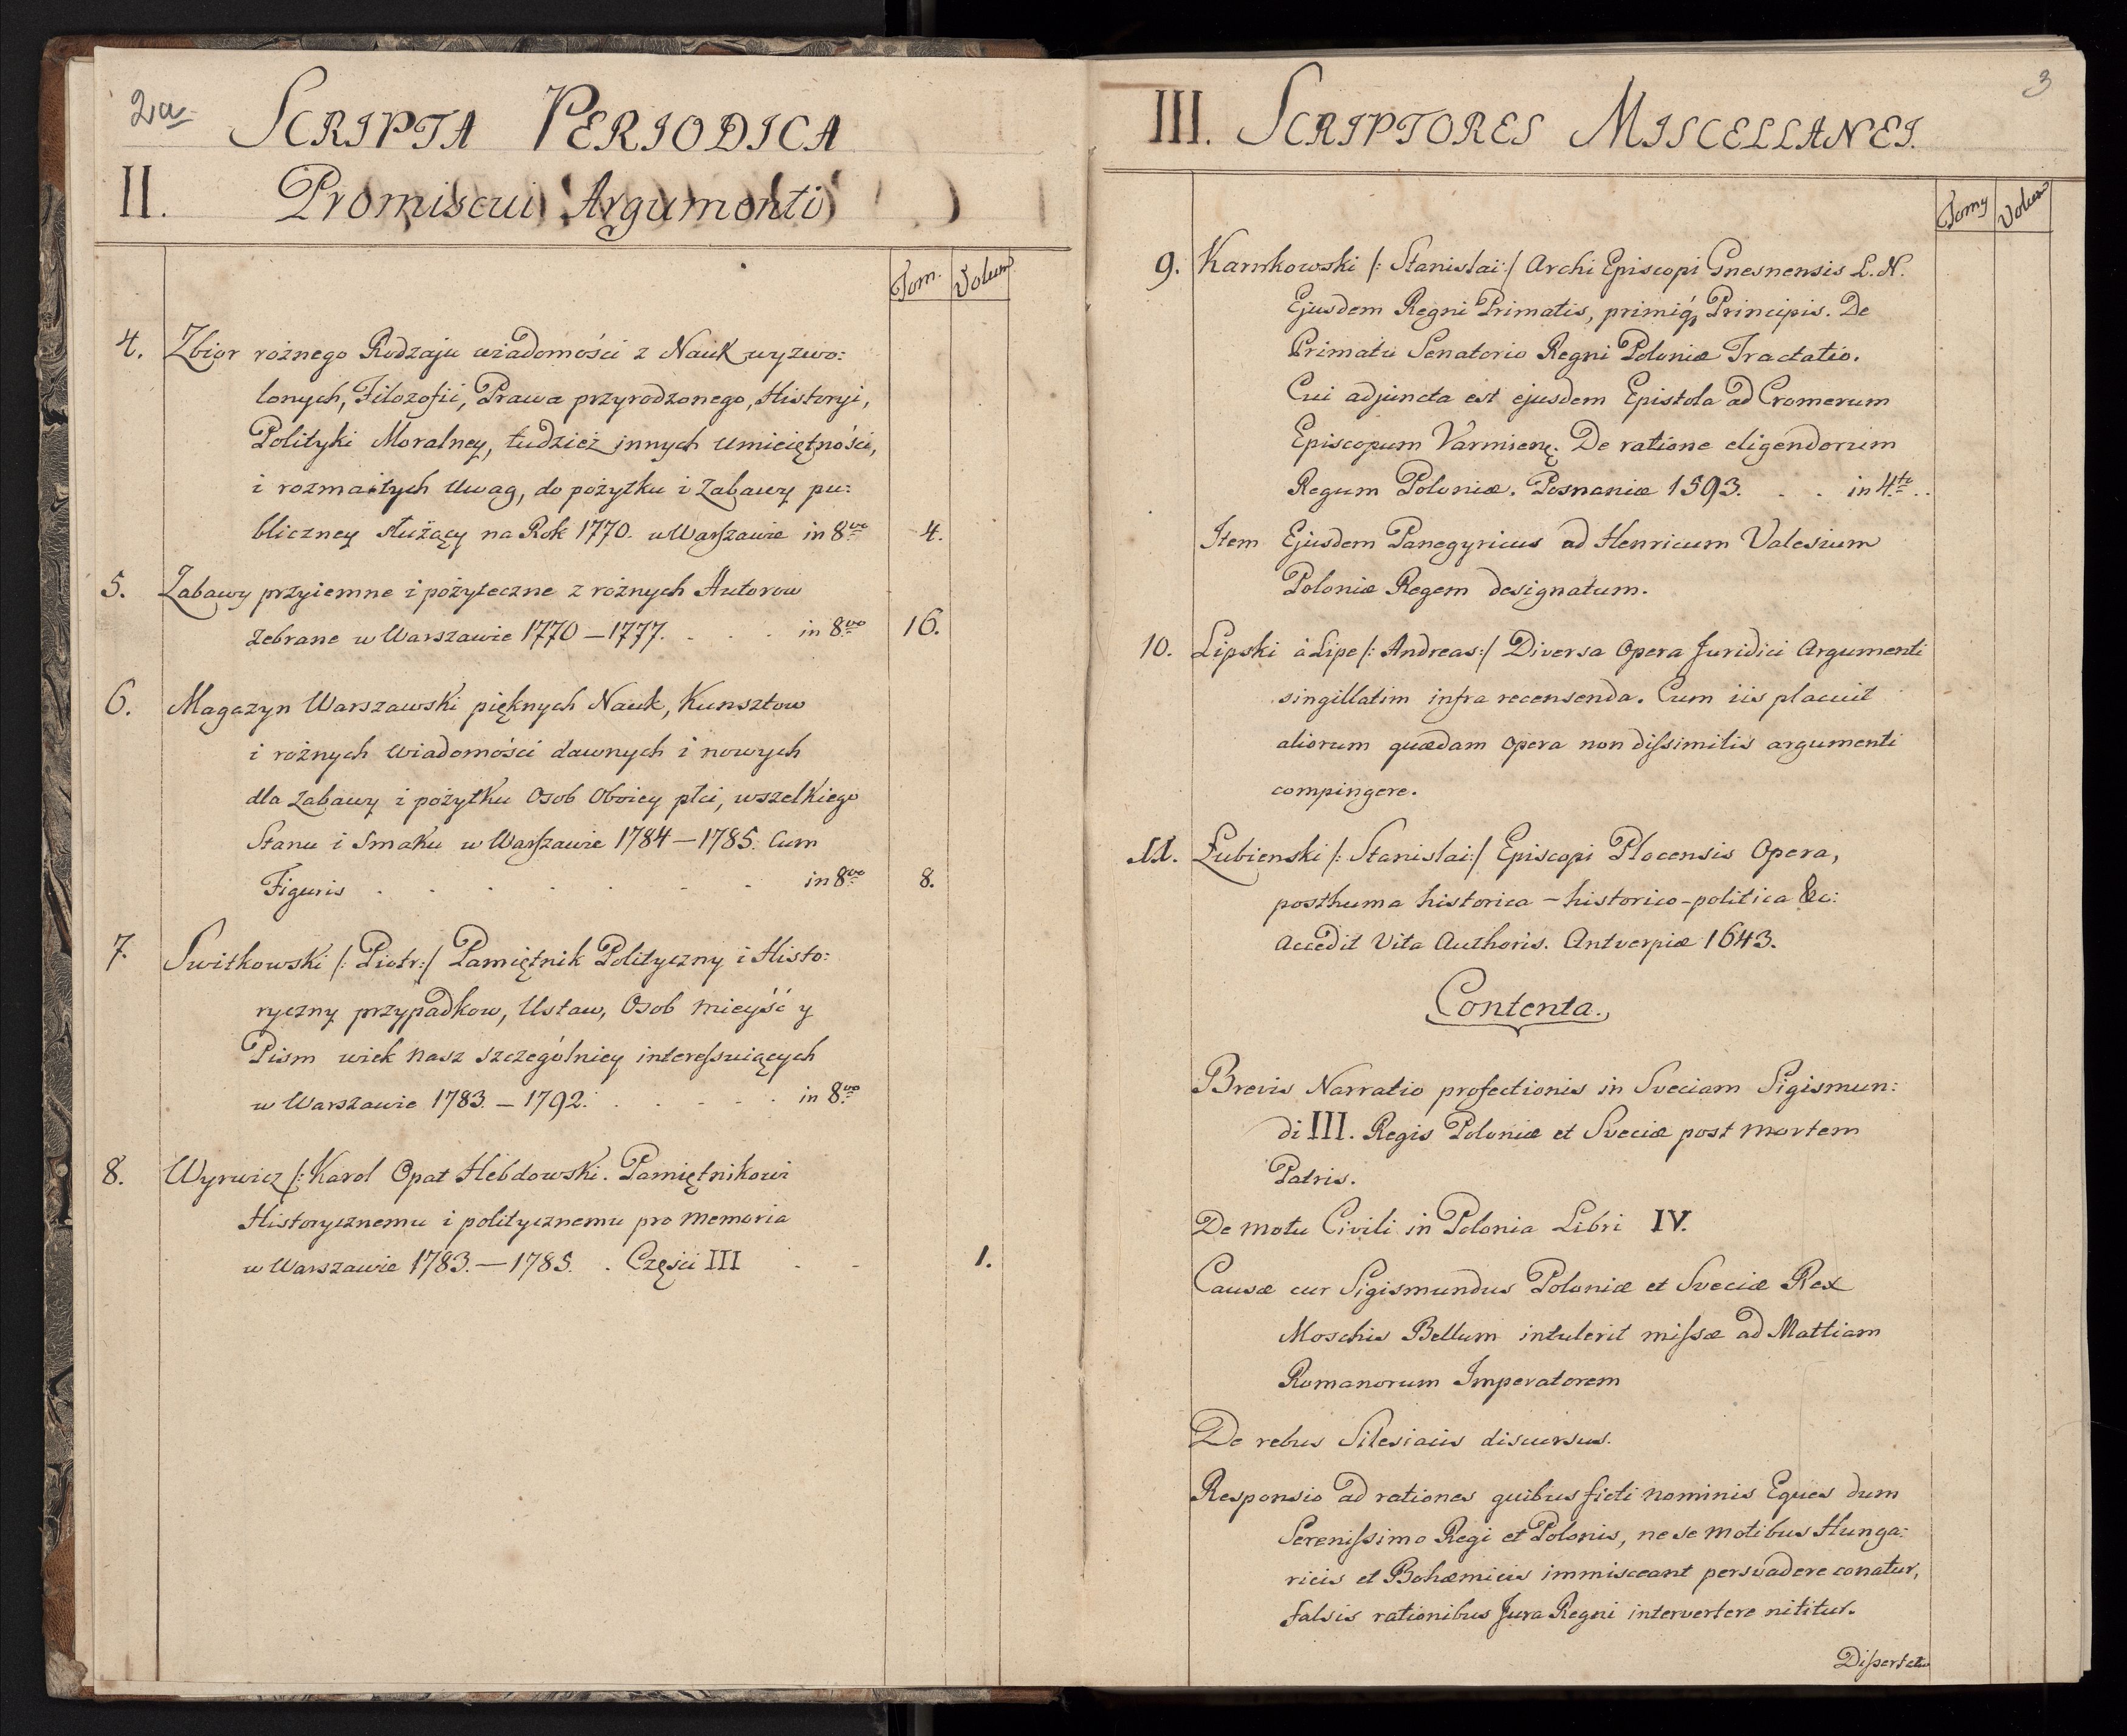 2a
SCRIPTA PERIODICA
II. Promiscui Argumenti
Tom. Volum
4. Zbior rożnego Rodzaju wiadomości z Nauk wyzwo:
lonych, Filozofii, Prawa przyrodzonego, Historyi,
Polityki Moralney, tudzież innych Umieiętności,
i rozmaitych Uwag, do pożytku i Zabawy pu:
bliczney służący na Rok 1770. w Warſzawie in 8vo 4.
5. Zabawy przyiemne i pożyteczne z rożnych Autorow
zebrane w Warszawie 1770 – 1777. . . . in 8vo 16.
6. Magazyn Warszawski pięknych Nauk, Kunsztow
i rożnych Wiadomości dawnych i nowych
dla Zabawy i pożytku Osob Oboiey płci, wszelkiego
Stanu i Smaku w Warſzawie 1784 – 1785. Cum
Figuris . . . . . . . in 8vo 8.
7. Switkowski /: Piotr :/ Pamiętnik Polityczny i Histo:
ryczny przypadkow, Ustaw, Osob mieyść y
Pism wiek nasz szczególniey intereſsuiących
w Warszawie 1783. – 1792. . . . . . in 8vo
8. Wyrwicz /: Karol Opat Hebdowski. Pamiętnikowi
Historycznemu i politycznemu pro memoria
w Warszawie 1783. – 1785. . Częsci III . . 1.
3
III. SCRIPTORES MISCELLANEI.
Tomy Volum
9. Karnkowski /: Stanislai :/ Archi Episcopi Gnesnensis L. N.
Ejusdem Regni Primatis, primiq, Principis. De
Primatu Senatorio Regni Poloniæ Tractatio.
Cui adjuncta est ejusdem Epistola ad Cromerum
Episcopum Varmienę. De ratione eligendorum
Regum Poloniæ. Posnaniæ 1593. . . in 4to . .
Item Ejusdem Panegyricus ad Henricum Valesium
Poloniæ Regem designatum.
10. Lipski à Lipe /: Andreas :/ Diversa Opera Juridici Argumenti
singillatim infra recensenda. Cum iis placuit
aliorum quædam opera non diſsimilis argumenti
compingere.
11. Łubienski /: Stanislai :/ Episcopi Plocensis Opera,
posthuma historica – historico-politica &c:
Accedit Vita Authoris. Antverpiæ 1643.
Contenta.
Brevis Narratio profectionis in Sveciam Sigismun:
di III. Regis Poloniæ et Sveciæ post mortem
Patris.
De motu Civili in Polonia Libri IV.
Causæ cur Sigismundus Poloniæ et Sveciæ Rex
Moschis Bellum intulerit miſsæ ad Mattiam
Romanorum Imperatorem
De rebus Silesiacis discursus.
Responsio ad rationes quibus ficti nominis Eques dum
Sereniſsimo Regi et Polonis, ne se motibus Hunga:
ricis et Bohæmicis immisceant persuadere conatur,
falsis rationibus Jura Regni intervertere nititur.
Diſsertatio